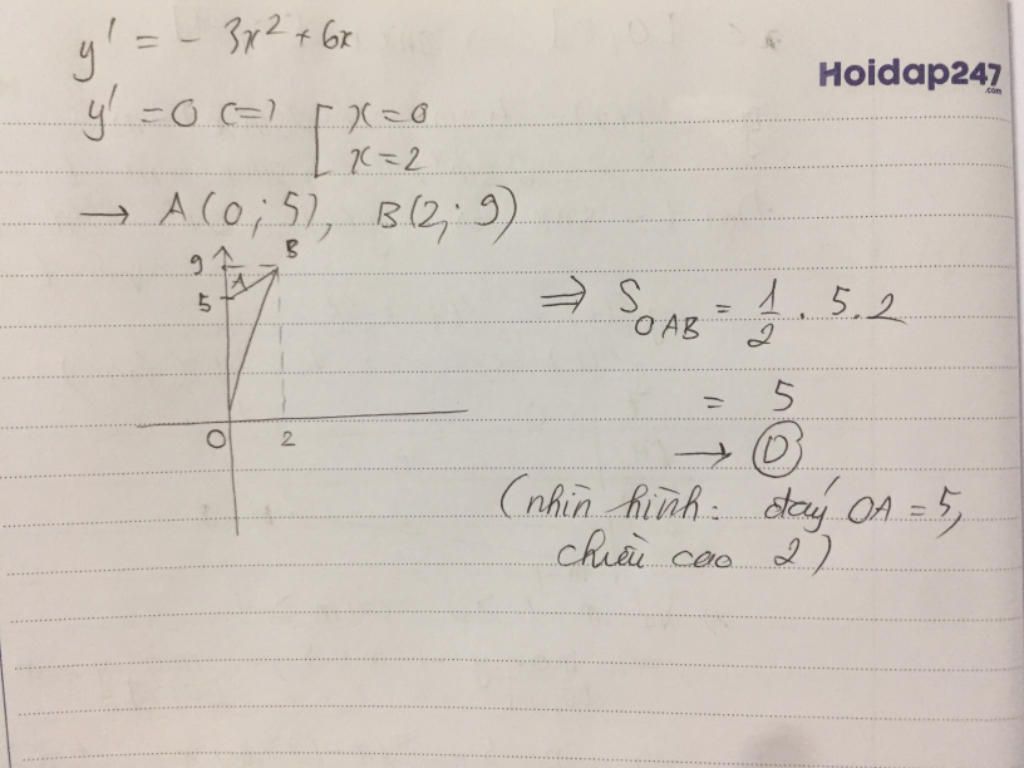 y' = - 3x² + 6x
Hoidap247
.com
y' = 0 <=> [ x = 0
x = 2
→ A(0; 5), B(2; 9)
B
9
A
5
⇒ S_OAB = 1/2 . 5.2
= 5
O 2
→ D
(nhìn hình: đáy OA = 5,
chiều cao 2)